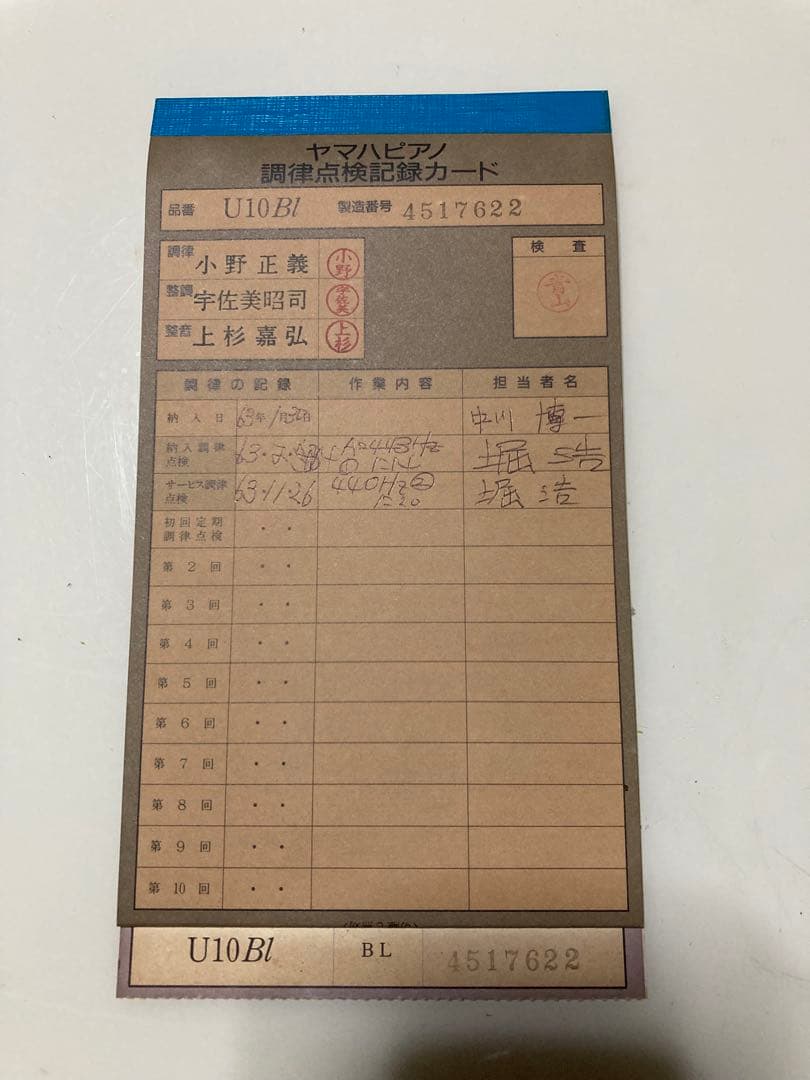 ヤマハピアノ
調律点検記録カード
品番 U10Bl 製造番号 4517622
調律 小野正義 小野
整調 宇佐美昭司 宇佐美
整音 上杉嘉弘 上杉
検査
青山
調律の記録 作業内容 担当者名
納入日 63年1月30日 中川 博一
納入調律点検 63・2・ A=443Hz 堀 浩
サービス調律点検 63・11・26 440Hz② 堀 浩
初回定期調律点検 ・・
第2回 ・・
第3回 ・・
第4回 ・・
第5回 ・・
第6回 ・・
第7回 ・・
第8回 ・・
第9回 ・・
第10回 ・・
U10Bl BL 4517622